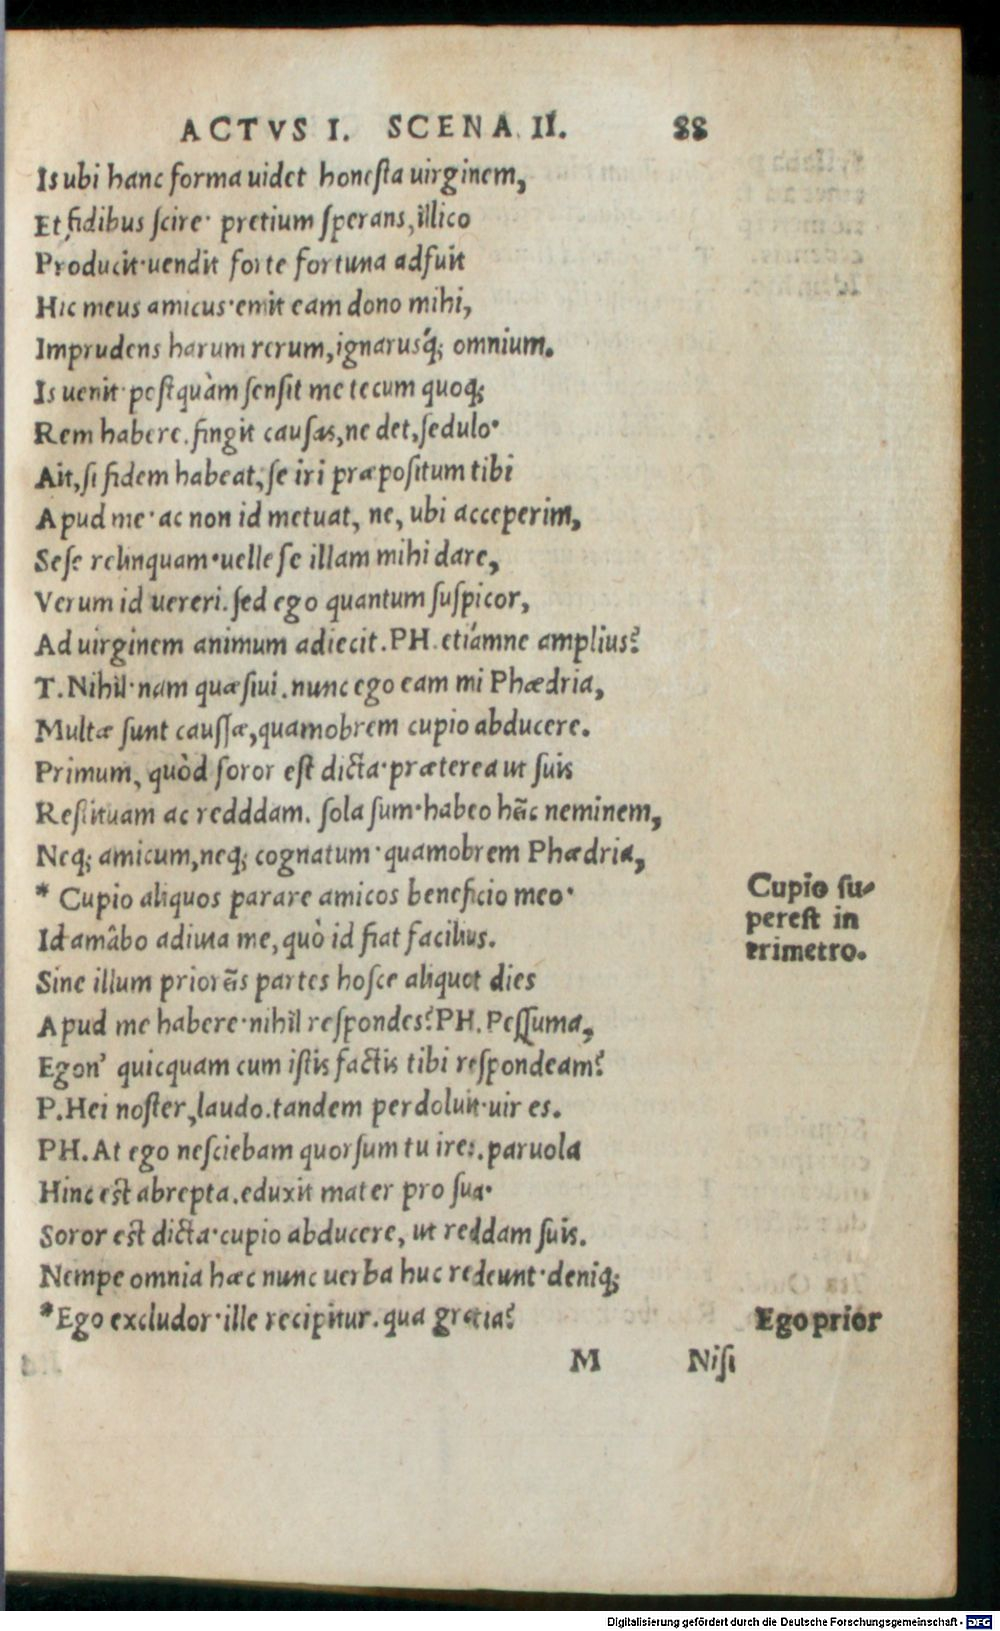 ACTVS I. SCENA II. 88
Is ubi hanc forma uidet honesta uirginem,
Et fidibus scire· pretium sperans, illico
Producit·uendit forte fortuna adfuit
Hic meus amicus·emit eam dono mihi,
Imprudens harum rerum, ignarusq́; omnium.
Is uenit·postquàm sensit me tecum quoq;
Rem habere. fingit causas, ne det, sedulo·
Ait, si fidem habeat, se iri præpositum tibi
Apud me·ac non id metuat, ne, ubi acceperim,
Sese relinquam·uelle se illam mihi dare,
Verum id uereri. sed ego quantum suspicor,
Ad uirginem animum adiecit. PH. etiámne amplius?
T. Nihil·nam quæsiui. nunc ego eam mi Phædria,
Multæ sunt caussæ, quamobrem cupio abducere.
Primum, quòd soror est dicta·præterea ut suis
Restituam ac redddam. sola sum·habeo hẽc neminem,
Neq; amicum, neq; cognatum·quamobrem Phædria,
* Cupio aliquos parare amicos beneficio meo·
Id amâbo adiuta me, quò id fiat facilius.
Sine illum priorẽs partes hosce aliquot dies
Apud me habere·nihil respondes? PH. Pessuma,
Egon' quicquam cum istis factis tibi respondeam?
P. Hei noster, laudo. tandem perdoluit·uir es.
PH. At ego nesciebam quorsum tu ires. paruola
Hinc est abrepta. eduxit mater pro sua·
Soror est dicta·cupio abducere, ut reddam suis.
Nempe omnia hæc nunc uerba huc redeunt·deniq;
*Ego excludor·ille recipitur. qua gratia?
Cupio su-
perest in
trimetro.
Ego prior
M Nisi
Digitalisierung gefördert durch die Deutsche Forschungsgemeinschaft - DFG